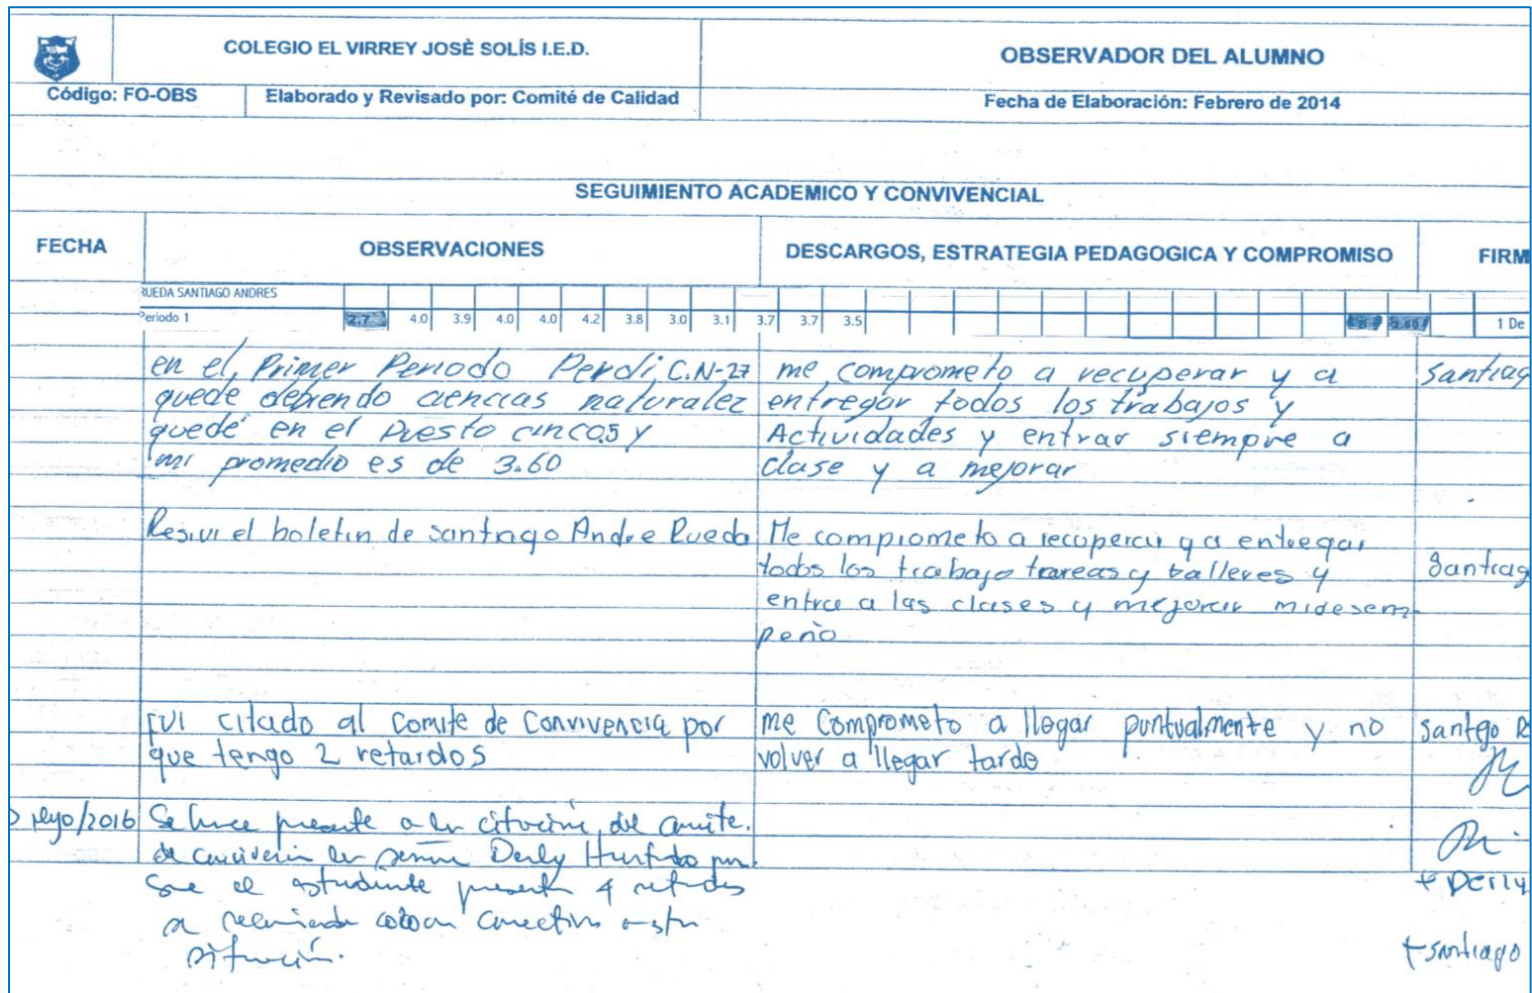 COLEGIO EL VIRREY JOSÈ SOLÍS I.E.D.
OBSERVADOR DEL ALUMNO
Código: FO-OBS
Elaborado y Revisado por: Comité de Calidad
Fecha de Elaboración: Febrero de 2014
SEGUIMIENTO ACADEMICO Y CONVIVENCIAL
FECHA
OBSERVACIONES
DESCARGOS, ESTRATEGIA PEDAGOGICA Y COMPROMISO
FIRM
RUEDA SANTIAGO ANDRES
Periodo 1 2.7 4.0 3.9 4.0 4.0 4.2 3.8 3.0 3.1 3.7 3.7 3.5 1 De
en el Primer Periodo Perdi C.N-27
quede debiendo ciencias naturalez
quedé en el puesto cinco5 y
mi promedio es de 3.60
me comprometo a recuperar y a
entregar todos los trabajos y
Actividades y entrar siempre a
clase y a mejorar
Santiag
Resivi el boletin de santiago Andre Rueda
Me comprometo a recuperar y a entregar
todos los trabajo tareas y talleres y
entra a las clases y mejorar mi desem
peño
Santiag
FUI citado al comite de Convivencia por
que tengo 2 retardos
me Comprometo a llegar puntualmente y no
volver a llegar tarde
santigo R
/2016
Se hace presente a la citación del comite
de convivencia la señora Derly Hurtado por
que el estudiante presenta 4 retardos
se recomienda colocar correctivo a esta
situación.
+ Derly
+ santiago